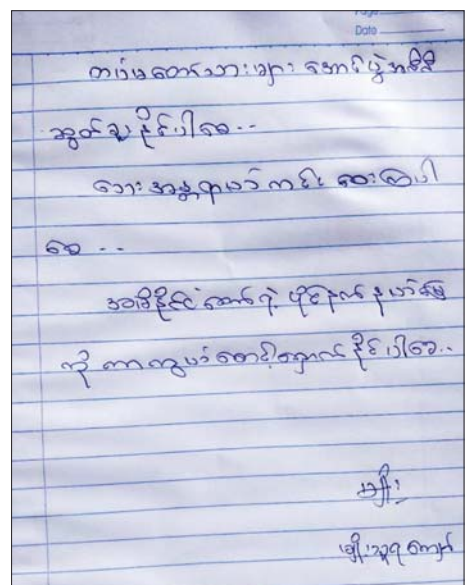 Page
Date
တပ်မတော်သားများ အောင်ပွဲအစဉ်
ဆွတ်ခူးနိုင်ပါစေ..
ဘေးအန္တရာယ်ကင်းဝေးကြပါ
စေ..
အမိနိုင်ငံတော်ရဲ့ ပိုင်နက်နယ်မြေ
ကို ကာကွယ်စောင့်ရှောက်နိုင်ပါစေ..
မျိုး
မျိုးသူရကျော်